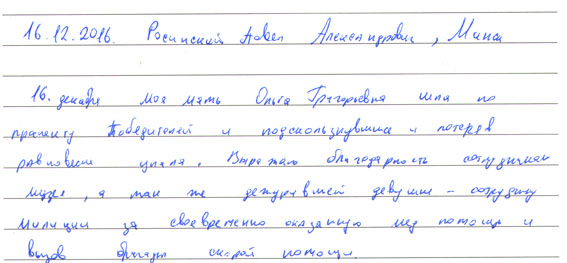 16.12.2016. Росинский Павел Александрович, Минск
16. декабря моя мать Ольга Григорьевна шла по
проспекту Победителей и подскользнувшись и потеряв
равновесие упала. Выражаю благодарность сотрудникам
музея, а так же дежурившей девушке - сотруднику
милиции за своевременно оказанную мед помощь и
вызов бригады скорой помощи.